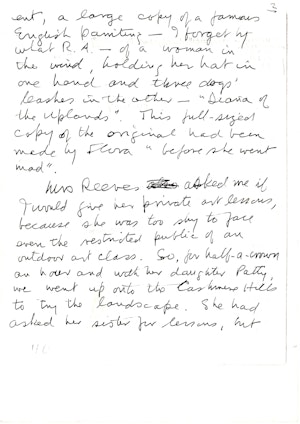 3
ent, a large copy of a famous
English painting – I forget by
what R.A. – of a woman in
the wind, holding her hat in
one hand and three dogs'
leashes in the other – "Diana of
the Uplands". This full-sized
copy of the original had been
made by Flora "before she went
mad".
Mrs Reeves asked me if
I would give her private art lessons,
because she was too shy to face
even the restricted public of an
outdoor art class. So, for half-a-crown
an hour and with her daughter Patty,
we went up onto the Cashmere Hills
to try the landscape. She had
asked her sister for lessons, but